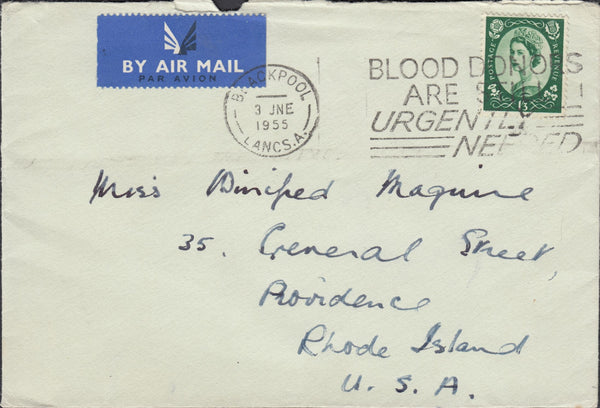 BY AIR MAIL
PAR AVION
BLACKPOOL
3 JNE
1955
LANCS.A.
BLOOD DONORS
ARE STILL
URGENTLY
NEEDED
POSTAGE REVENUE
1/3
Miss Winifred Maguire
35. General Street,
Providence
Rhode Island
U. S. A.